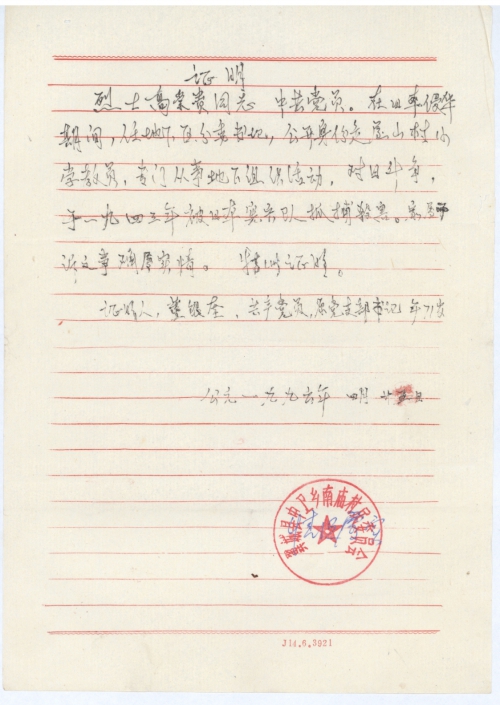 证明
烈士高荣贵同志 中共党员。在日本侵华
期间，任地下区分委书记，公开身份是 山村小
学教员，专门从事地下组织活动，对日斗争，
于一九四三年被日本宪兵队抓捕杀害。
所之事确属实情。 特此证明。
证明人， 银 、共产党员，原党支部书记 年71岁
公元一九九六年 四月廿 日
县中卫乡南庙村民委员会
J14.6.3921